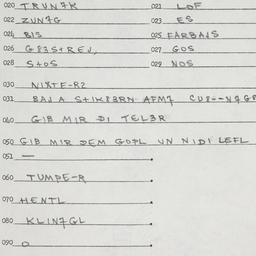 020 TRUN7K 021 LOF
022 ZUN7G 023 ES
024 BIS 025 FARBAJS
026 027 GOS
028 S+OS 029 NOS
030 NIXTE-R2
031 BAJ A
040 GIB MIR DI TEL3R
050 GIB MIR DEM GOFL UN NIDI LEFL
051 —
060 TUMPE-R
070 HENTL
080 KLIN7GL
090